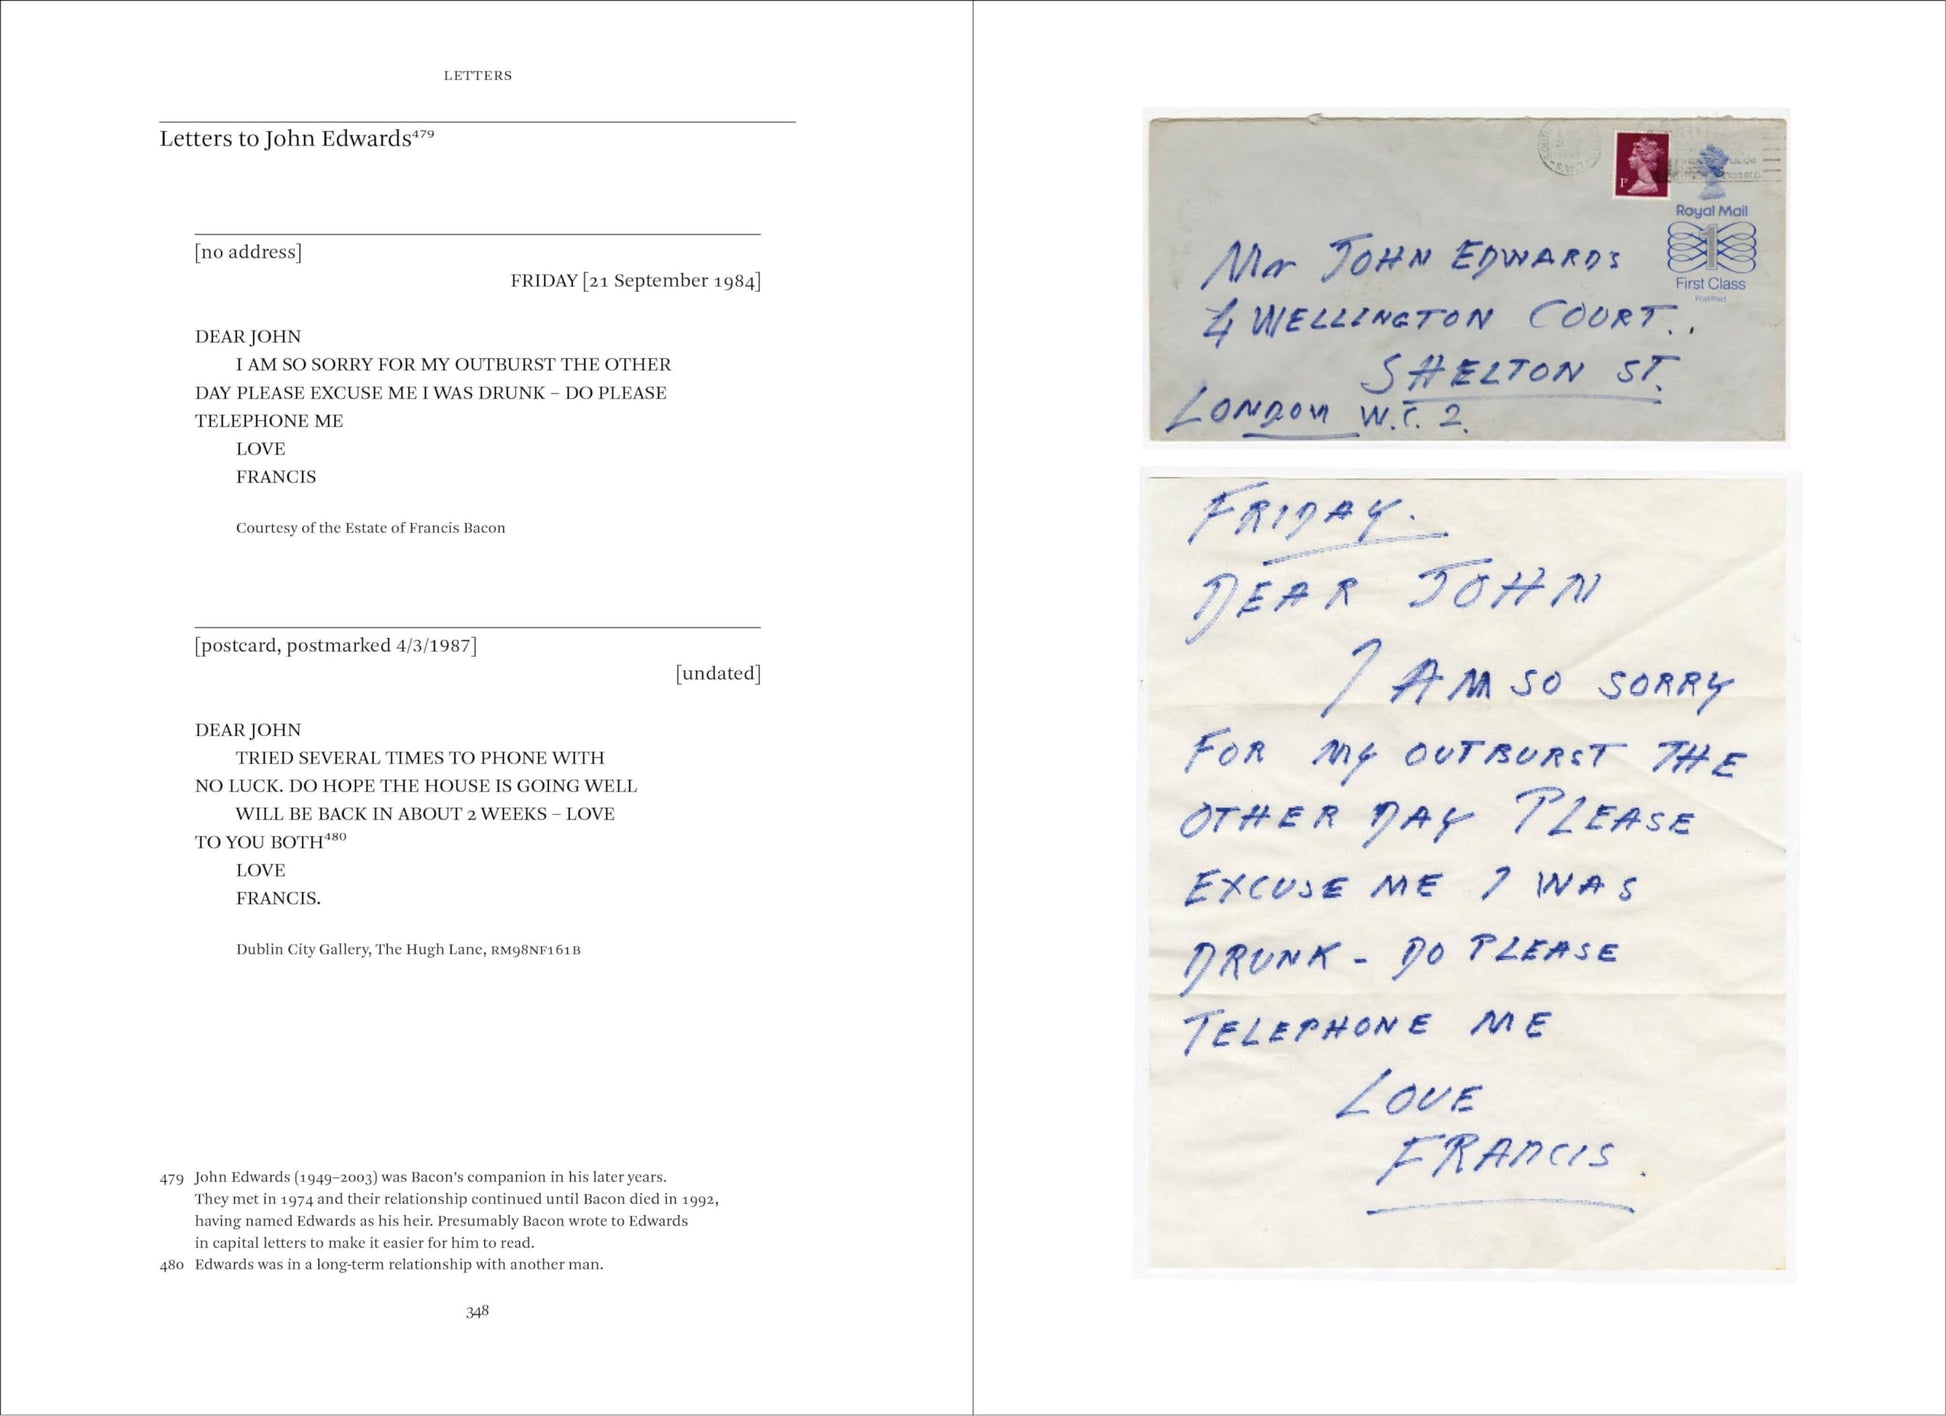 LETTERS
Letters to John Edwards⁴⁷⁹
[no address]
FRIDAY [21 September 1984]
DEAR JOHN
I AM SO SORRY FOR MY OUTBURST THE OTHER
DAY PLEASE EXCUSE ME I WAS DRUNK – DO PLEASE
TELEPHONE ME
LOVE
FRANCIS
Courtesy of the Estate of Francis Bacon
[postcard, postmarked 4/3/1987]
[undated]
DEAR JOHN
TRIED SEVERAL TIMES TO PHONE WITH
NO LUCK. DO HOPE THE HOUSE IS GOING WELL
WILL BE BACK IN ABOUT 2 WEEKS – LOVE
TO YOU BOTH⁴⁸⁰
LOVE
FRANCIS.
Dublin City Gallery, The Hugh Lane, RM98NF161B
479 John Edwards (1949–2003) was Bacon's companion in his later years.
They met in 1974 and their relationship continued until Bacon died in 1992,
having named Edwards as his heir. Presumably Bacon wrote to Edwards
in capital letters to make it easier for him to read.
480 Edwards was in a long-term relationship with another man.
348
S.W.
1P
Royal Mail
1
First Class
Post Paid
Mr JOHN EDWARDS
4 WELLINGTON COURT.
SHELTON ST.
LONDON W.C. 2.
FRIDAY.
DEAR JOHN
I AM SO SORRY
FOR MY OUTBURST THE
OTHER DAY PLEASE
EXCUSE ME I WAS
DRUNK - DO PLEASE
TELEPHONE ME
LOVE
FRANCIS.